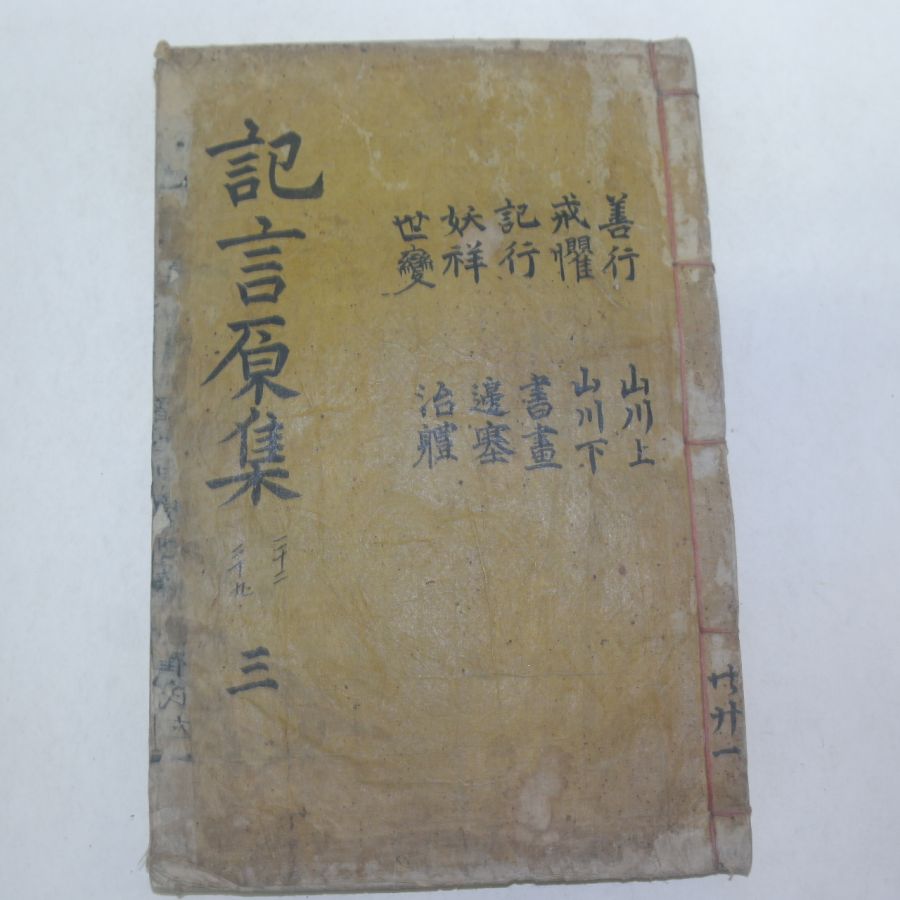 善行
山川上
戒懼
山川下
記行
書畫
妖祥
邊塞
世變
治軆
記言原集
二十二
三
共廿一